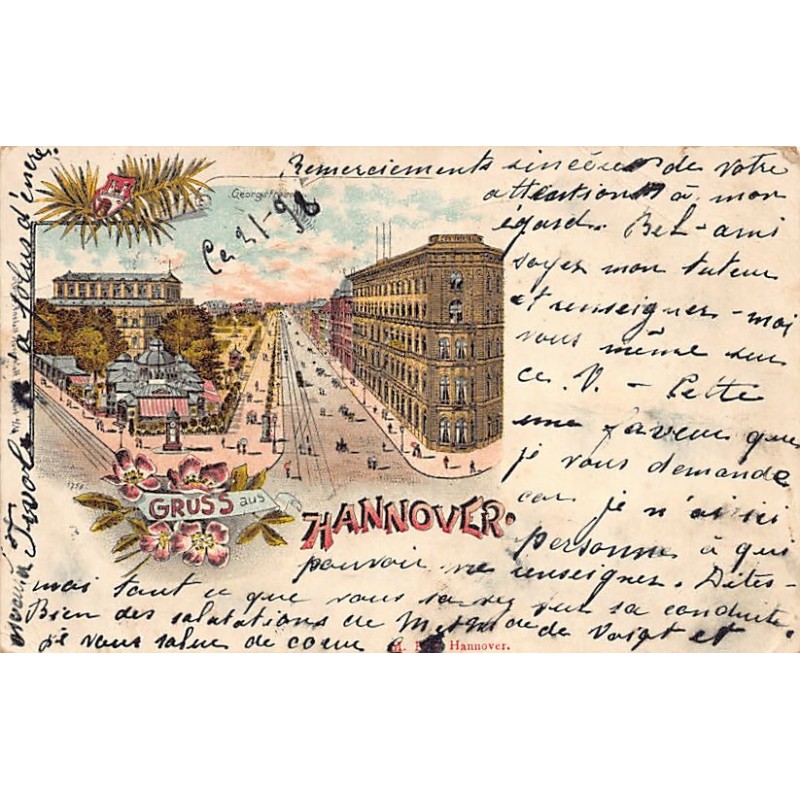 Remerciements sincères de votre
attention à mon
égard. Bel-ami
soyez mon tuteur
et renseignez-moi
vous même sur
ce. V. – Cette
une faveur que
je vous demande
car je n'ai ici
personne à qui
pouvoir me renseigner. Dites-
moi tout ce que vous savez sur sa conduite
Bien des salutations de M et Mme de Voigt et
je vous salue de coeur
Georgstrasse
Ce 21-98
1756
GRUSS aus
HANNOVER.
Hannover.
a plus d'encre.
Tivola